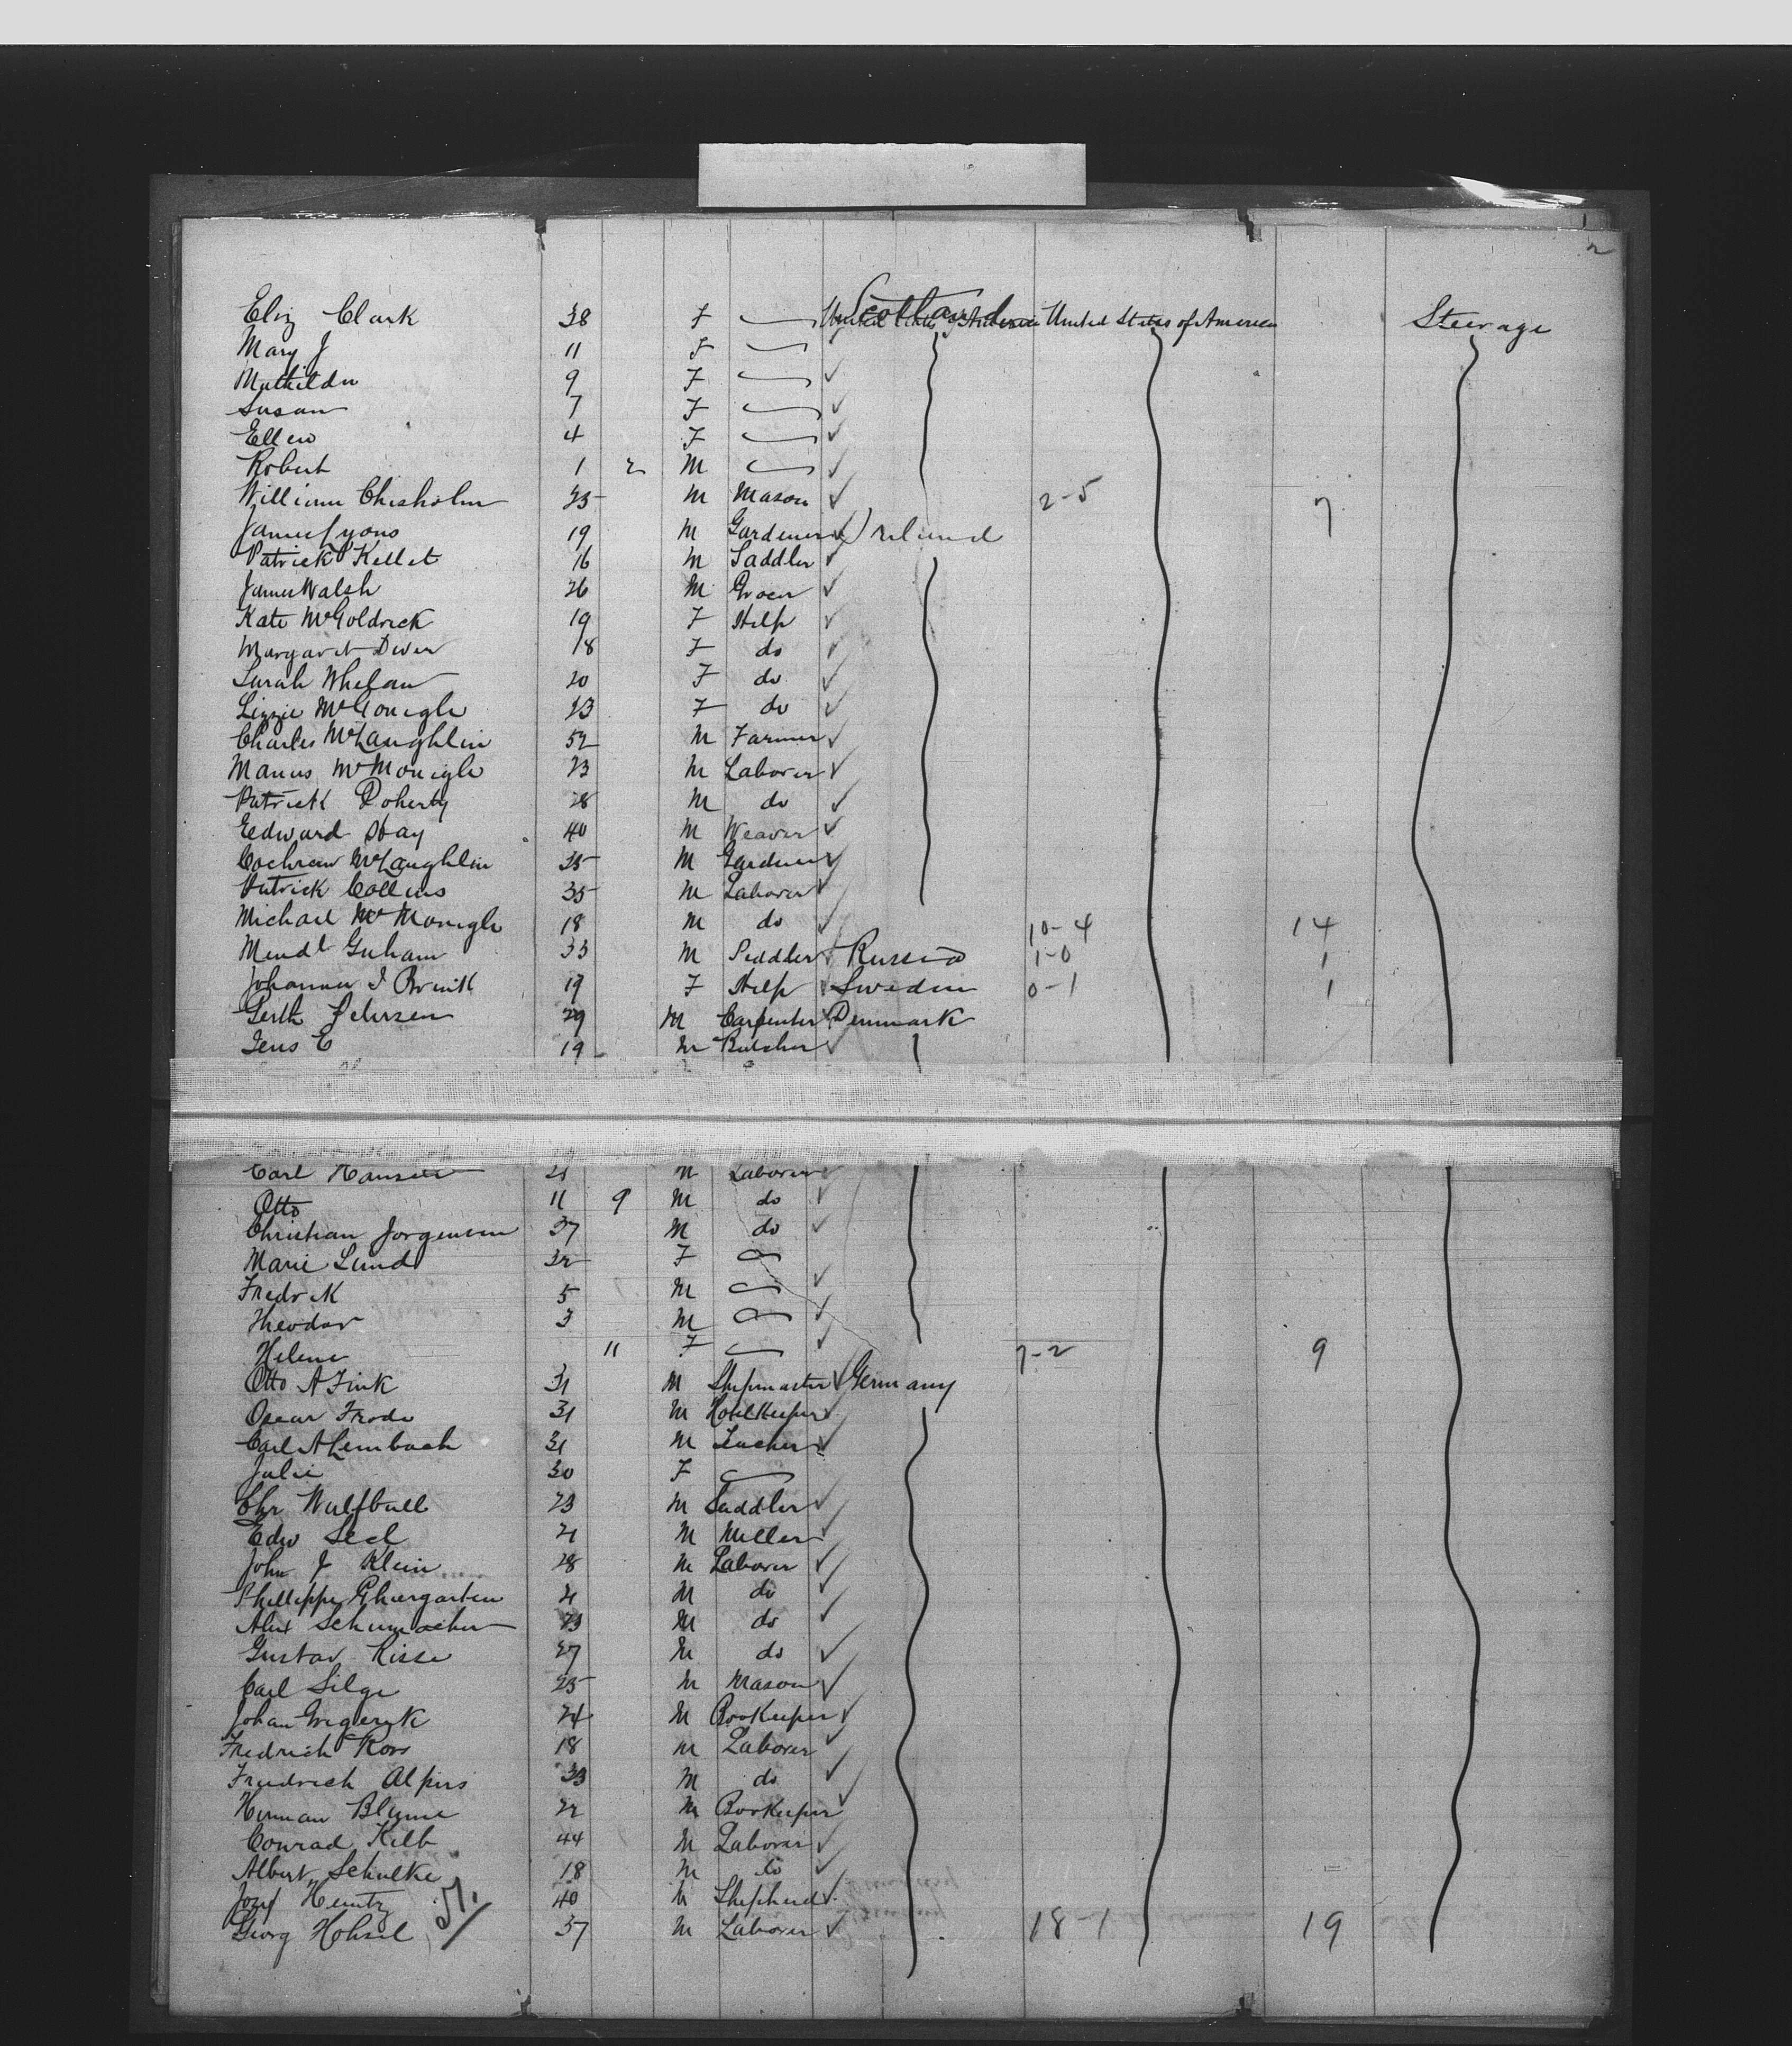 2
Eliz Clark 38 F Scotland United States of America Steerage
Mary J 11 F
Mathilda 9 F
Susan 7 F
Ellen 4 F
Robert 1 2 M
William Chisholm 23 M Mason 2-5 7
James Lyons 19 M Gardener Ireland
Patrick Kellet 16 M Saddler
James Walsh 26 M Grocer
Kate McGoldrick 19 F Help
Margaret Diver 18 F do
Sarah Whelan 20 F do
Lizzie McGonigle 23 F do
Charles McLaughlin 52 M Farmer
Manus McMonigle 23 M Laborer
Patrick Doherty 28 M do
Edward Hay 40 M Weaver
Cochran McLaughlin 35 M Gardener
Patrick Collins 35 M Laborer
Michael McMonigle 18 M do 10-4 14
Mendl Guham 33 M Peddler Russia 1-0 1
Johanna I Brink 19 F Help Sweden 0-1 1
Petersen 29 M Carpenter Denmark
Jens E 19 M Butcher
Carl Hansen 21 M Laborer
Otto 11 9 M do
Christian Jorgensen 37 M do
Marie Lund 32 F
Fredrik 5 M
Theodor 3 M
Helene 11 F 7-2 9
Otto A Fink 31 M Shipmaster Germany
Oscar Frode 31 M Hotelkeeper
Carl A Lembach 31 M
Julie 30 F
Chr Wulfbull 23 M Saddler
Edw Seel 21 M Miller
John J Klein 28 M Laborer
Phillippe 21 M do
Alex Schumacher 23 M do
Gustav Risse 27 M do
Carl Silge 25 M Mason
Johan 24 M Bookeeper
Fredrich Koss 18 M Laborer
Friedrich Alpers 33 M do
Herman Blume 22 M Bookeeper
Conrad Kilb 44 M Laborer
Albert Schulke 18 M do
Josef Heintz 40 M Shepherd
51.
Georg Hohsel 37 M Laborer 18-1 19